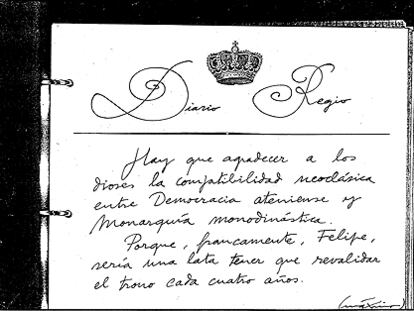 Diario Regio
Hay que agradecer a los
dioses la compatibilidad neoclásica
entre Democracia ateniense y
Monarquía monodinástica.
Porque, francamente, Felipe,
sería una lata tener que revalidar
el trono cada cuatro años.
(máximo)